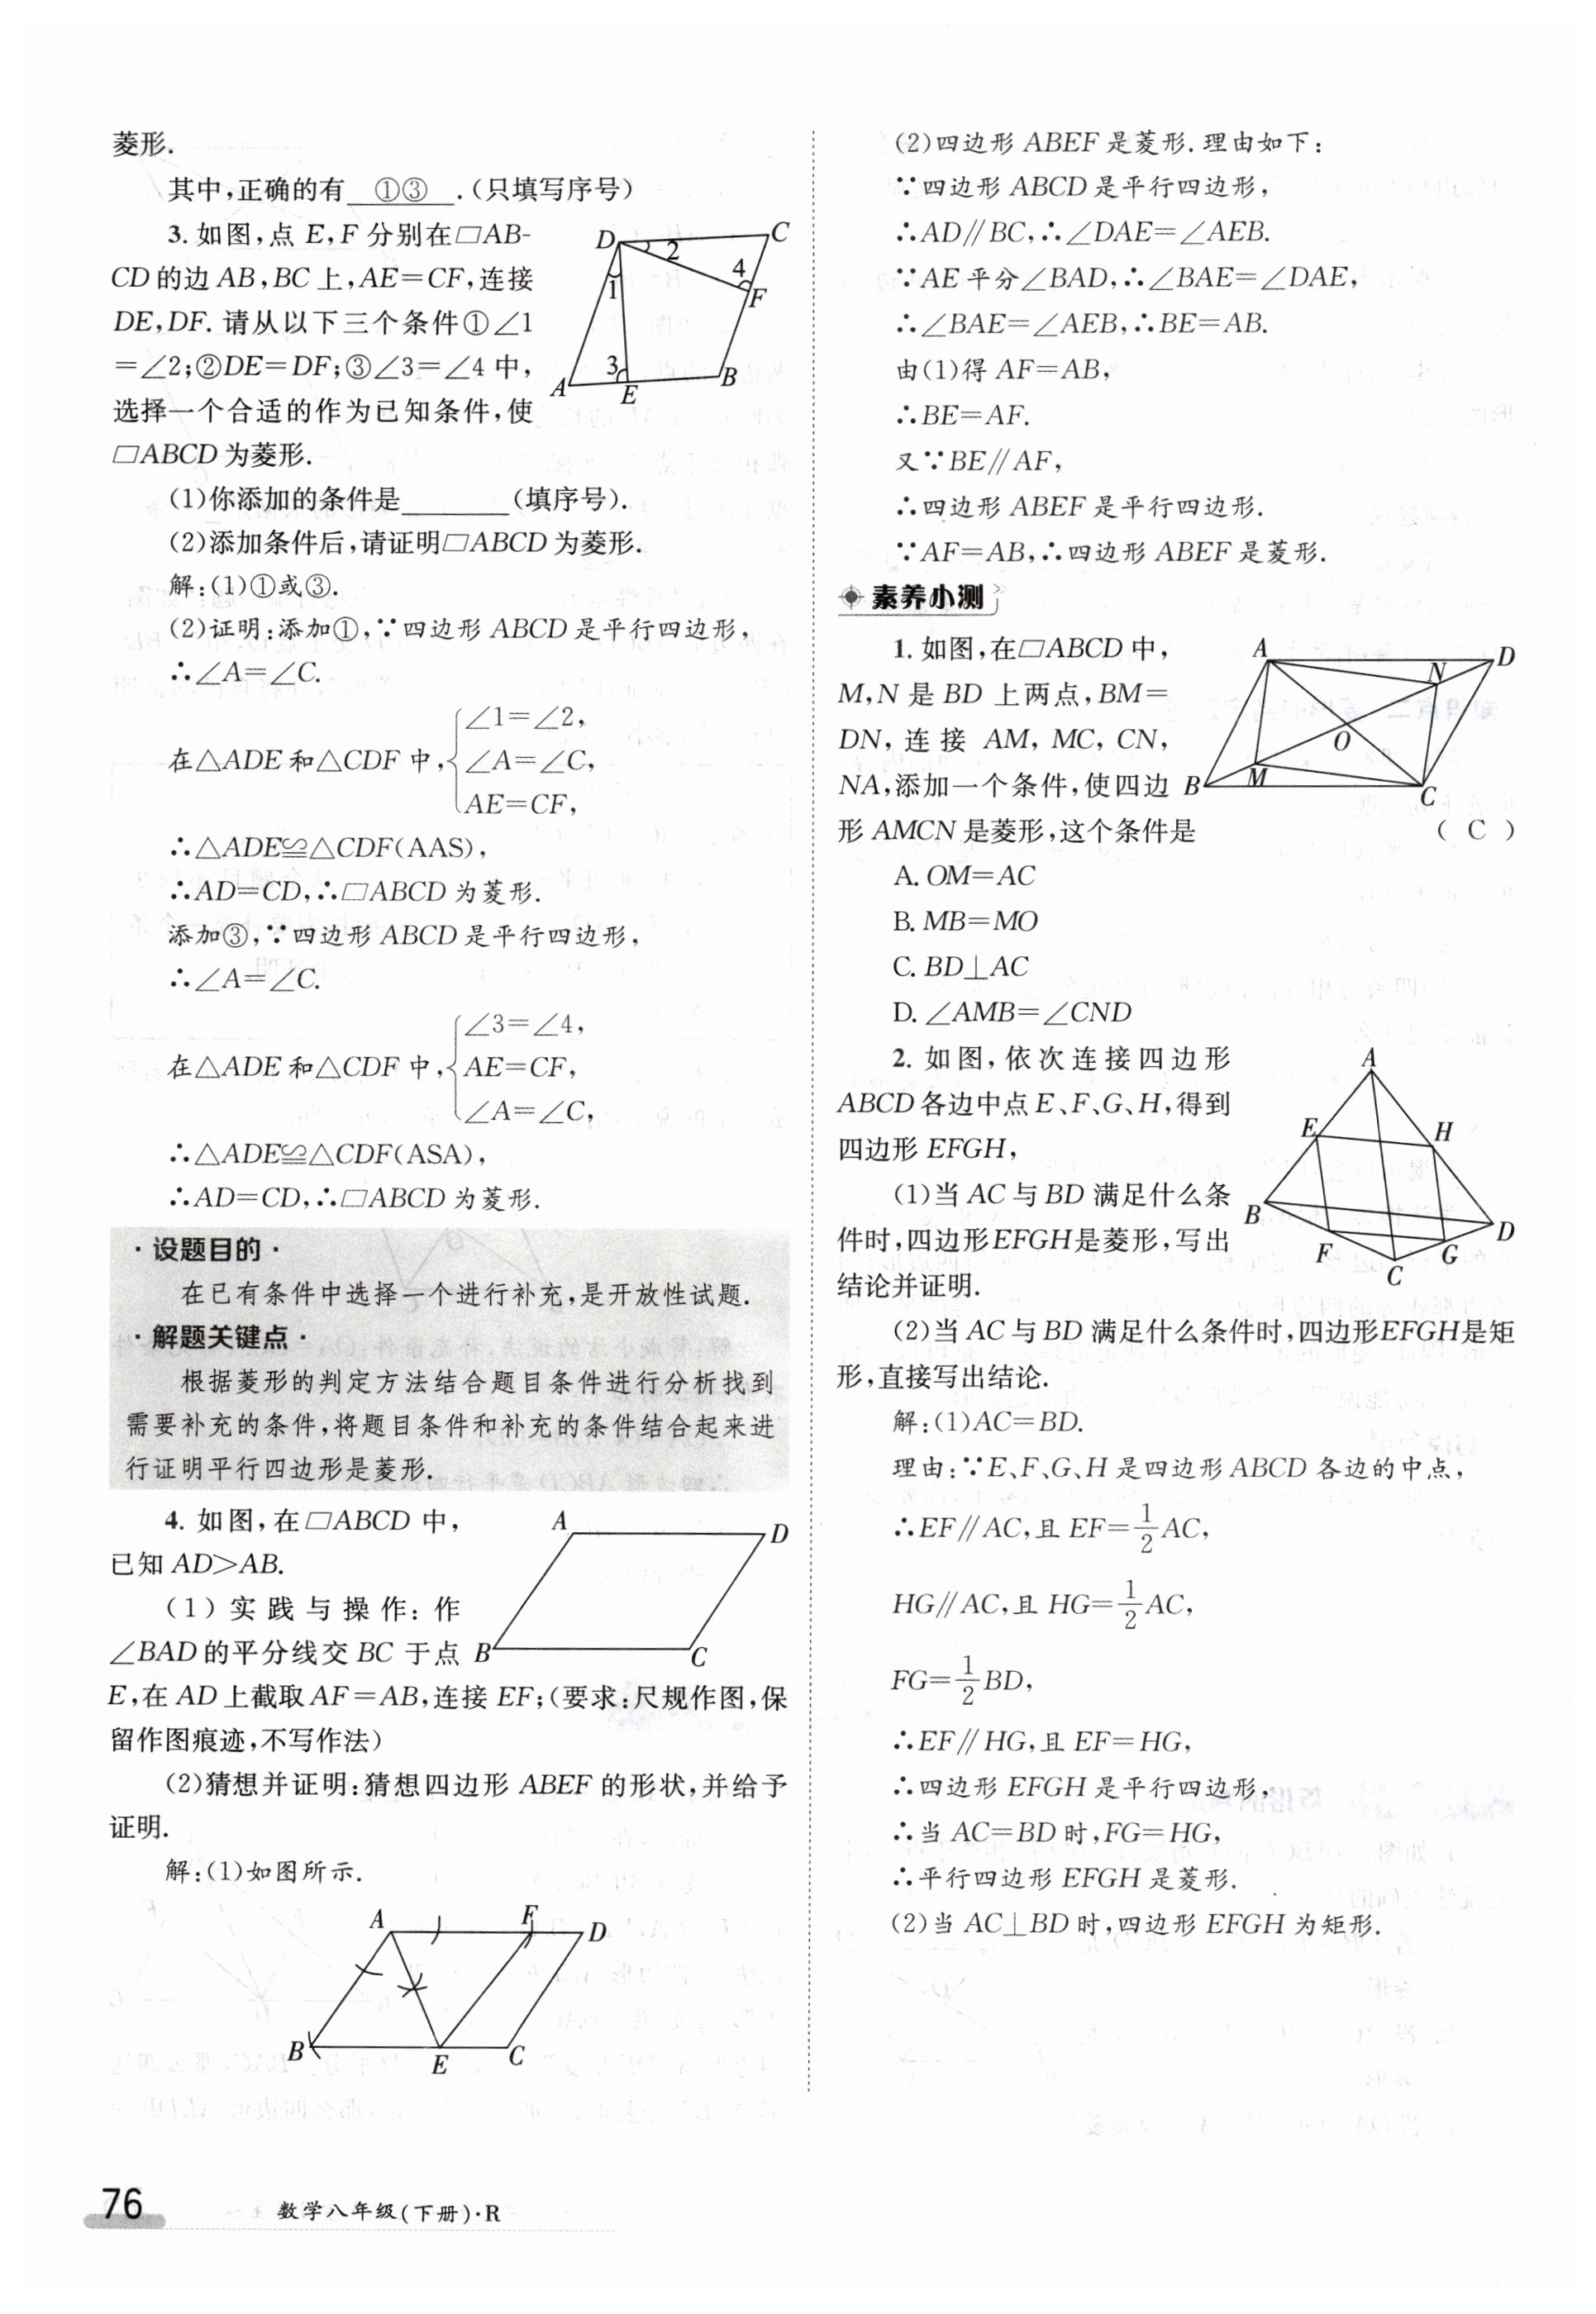 菱形.
其中,正确的有 ①③ .(只填写序号)
3. 如图,点 E,F 分别在□AB-
CD 的边 AB,BC 上,AE=CF,连接
DE,DF. 请从以下三个条件①∠1
=∠2;②DE=DF;③∠3=∠4 中,
选择一个合适的作为已知条件,使
□ABCD 为菱形.
D
C
2
4
F
1
3
A
E
B
(1)你添加的条件是________(填序号).
(2)添加条件后,请证明□ABCD 为菱形.
解:(1)①或③.
(2)证明:添加①,∵四边形 ABCD 是平行四边形,
∴∠A=∠C.
在△ADE 和△CDF 中,{∠1=∠2,
∠A=∠C,
AE=CF,
∴△ADE≌△CDF(AAS),
∴AD=CD,∴□ABCD 为菱形.
添加③,∵四边形 ABCD 是平行四边形,
∴∠A=∠C.
在△ADE 和△CDF 中,{∠3=∠4,
AE=CF,
∠A=∠C,
∴△ADE≌△CDF(ASA),
∴AD=CD,∴□ABCD 为菱形.
·设题目的·
在已有条件中选择一个进行补充,是开放性试题.
·解题关键点·
根据菱形的判定方法结合题目条件进行分析找到
需要补充的条件,将题目条件和补充的条件结合起来进
行证明平行四边形是菱形.
4. 如图,在□ABCD 中,
已知 AD>AB.
(1)实践与操作:作
∠BAD 的平分线交 BC 于点
E,在 AD 上截取 AF=AB,连接 EF;(要求:尺规作图,保
留作图痕迹,不写作法)
A
D
B
C
(2)猜想并证明:猜想四边形 ABEF 的形状,并给予
证明.
解:(1)如图所示.
A
F
D
B
E
C
(2)四边形 ABEF 是菱形.理由如下:
∵四边形 ABCD 是平行四边形,
∴AD∥BC,∴∠DAE=∠AEB.
∵AE 平分∠BAD,∴∠BAE=∠DAE,
∴∠BAE=∠AEB,∴BE=AB.
由(1)得 AF=AB,
∴BE=AF.
又∵BE∥AF,
∴四边形 ABEF 是平行四边形.
∵AF=AB,∴四边形 ABEF 是菱形.
素养小测
1. 如图,在□ABCD 中,
M,N 是 BD 上两点,BM=
DN,连接 AM,MC,CN,
NA,添加一个条件,使四边
形 AMCN 是菱形,这个条件是 ( C )
A
D
N
O
B
M
C
A. OM=AC
B. MB=MO
C. BD⊥AC
D. ∠AMB=∠CND
2. 如图,依次连接四边形
ABCD 各边中点 E、F、G、H,得到
四边形 EFGH,
(1)当 AC 与 BD 满足什么条
件时,四边形EFGH是菱形,写出
结论并证明.
A
E
H
B
D
F
G
C
(2)当 AC 与 BD 满足什么条件时,四边形EFGH是矩
形,直接写出结论.
解:(1)AC=BD.
理由:∵E、F、G、H 是四边形 ABCD 各边的中点,
∴EF∥AC,且 EF=1/2 AC,
HG∥AC,且 HG=1/2 AC,
FG=1/2 BD,
∴EF∥HG,且 EF=HG,
∴四边形 EFGH 是平行四边形,
∴当 AC=BD 时,FG=HG,
∴平行四边形 EFGH 是菱形.
(2)当 AC⊥BD 时,四边形 EFGH 为矩形.
76
数学八年级(下册)·R